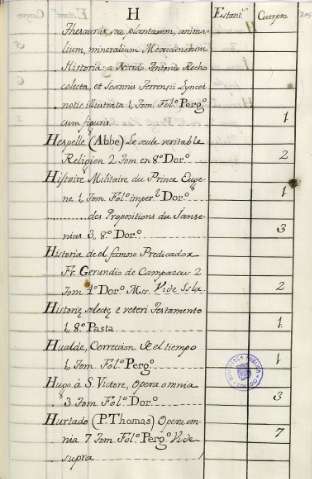 H Estant.s Cuerpos
Thesaurus, seu plantarum, anima-
lium, mineralium Mexicanorum
Historia a Nardo Antonio Recho
colecta, et Joannis Terrentii Lyncei
notis illustrata 1. Tom. Fol.º Perg.º
cum figuris 1
Hespelle (Abbe) Le seule veritable
Religion 2 Tom en 8º Dor.º 2
Histoire Militaire du Prince Euge-
ne 1. Tom. Fol.º imper.l Dor.º 1
des Propositions du Janse-
nius 3, 8.º Dor.º 3
Historia de el famoso Predicador
Fr. Gerundio de Campazas 2
Tom 4º Dor.º Mss. Vide Isla 2
Historiæ selectæ e veteri Testamento
1. 8.º Pasta 1.
Hualde, Correccion de el tiempo
1. Tom Fol.º Perg.º 1
Hugo à S. Victore, Opera omnia
3 Tom. Fol.º Dor.º 3
Hurtado (P. Thomas) Opera om-
nia 7 Tom Fol.º Perg.º Vide 7
supra